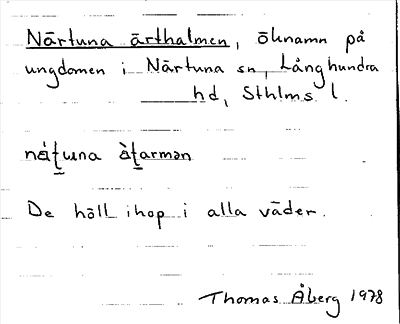 Närtuna ärthalmen, öknamn på
ungdomen i Närtuna sn, Långhundra
hd, Sthlms l.
nà̀ṭuna àṭarmən
De höll ihop i alla väder.
Thomas Åberg 1978